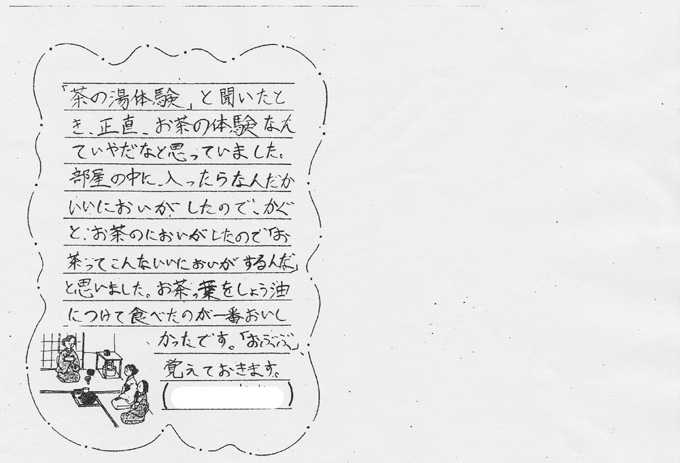 「茶の湯体験」と聞いたと
き、正直、お茶の体験なん
ていやだなと思っていました。
部屋の中に、入ったらなんだか
いいにおいが、したので、かぐ
と、お茶のにおいがしたので「お
茶ってこんないいにおいがするんだ」
と思いました。お茶っ葉をしょう油
につけて食べたのが一番おいし
かったです。「おぶぶ」、
覚えておきます。